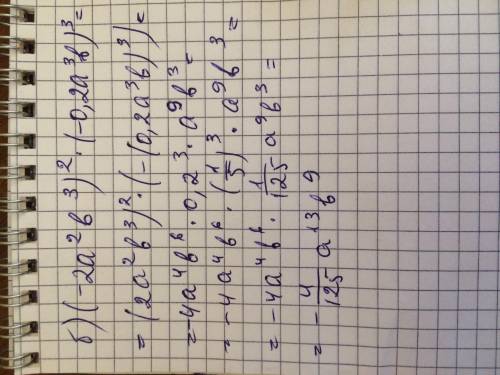 б) (-2a²b³)²·(-0,2a³b)³=
= (2a²b³)²·(-(0,2a³b)³)=
= -4a⁴b⁶·0,2³·a⁹b³=
= -4a⁴b⁶·(1/5)³·a⁹b³=
= -4a⁴b⁶·1/125 a⁹b³=
= -4/125 a¹³b⁹